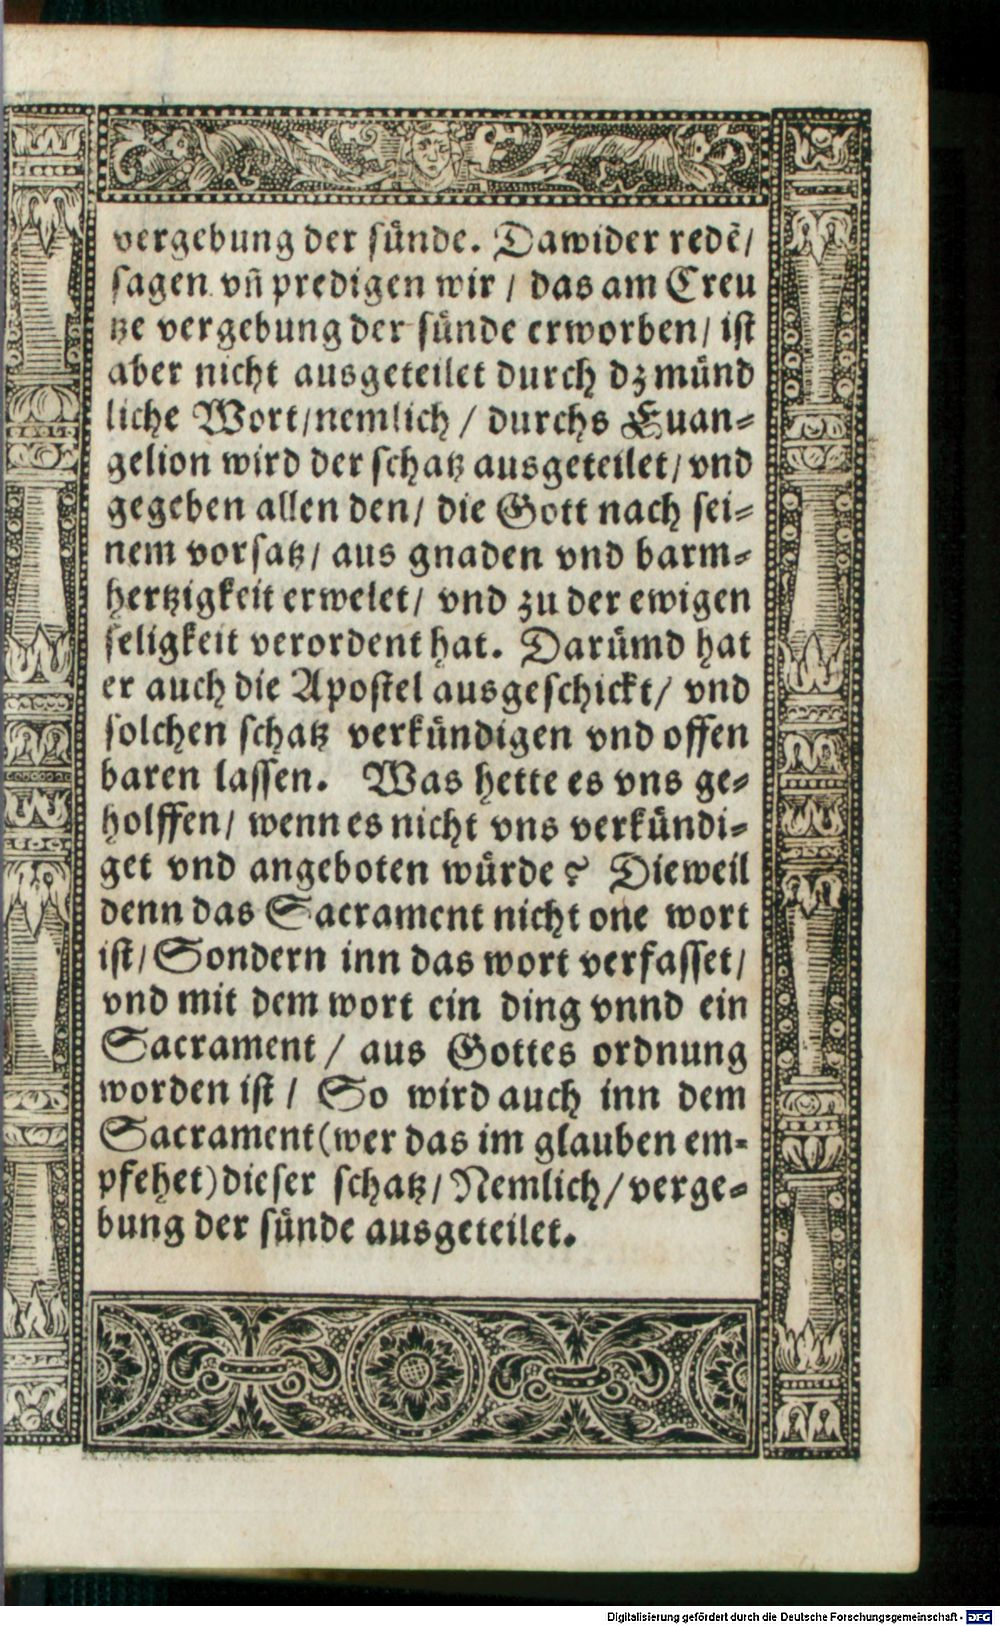 vergebung der sünde. Dawider redẽ/
sagen vñ predigen wir / das am Creu
tze vergebung der sünde erworben/ ist
aber nicht ausgeteilet durch dz münd
liche Wort/nemlich / durchs Euan⸗
gelion wird der schatz ausgeteilet/ vnd
gegeben allen den/ die Gott nach sei⸗
nem vorsatz/ aus gnaden vnd barm⸗
hertzigkeit erwelet/ vnd zu der ewigen
seligkeit verordent hat. Darümd hat
er auch die Apostel ausgeschickt/ vnd
solchen schatz verkündigen vnd offen
baren lassen. Was hette es vns ge⸗
holffen/ wenn es nicht vns verkündi⸗
get vnd angeboten würde? Dieweil
denn das Sacrament nicht one wort
ist/ Sondern inn das wort verfasset/
vnd mit dem wort ein ding vnnd ein
Sacrament / aus Gottes ordnung
worden ist / So wird auch inn dem
Sacrament (wer das im glauben em⸗
pfehet) dieser schatz/ Nemlich/ verge⸗
bung der sünde ausgeteilet.
Digitalisierung gefördert durch die Deutsche Forschungsgemeinschaft - DFG